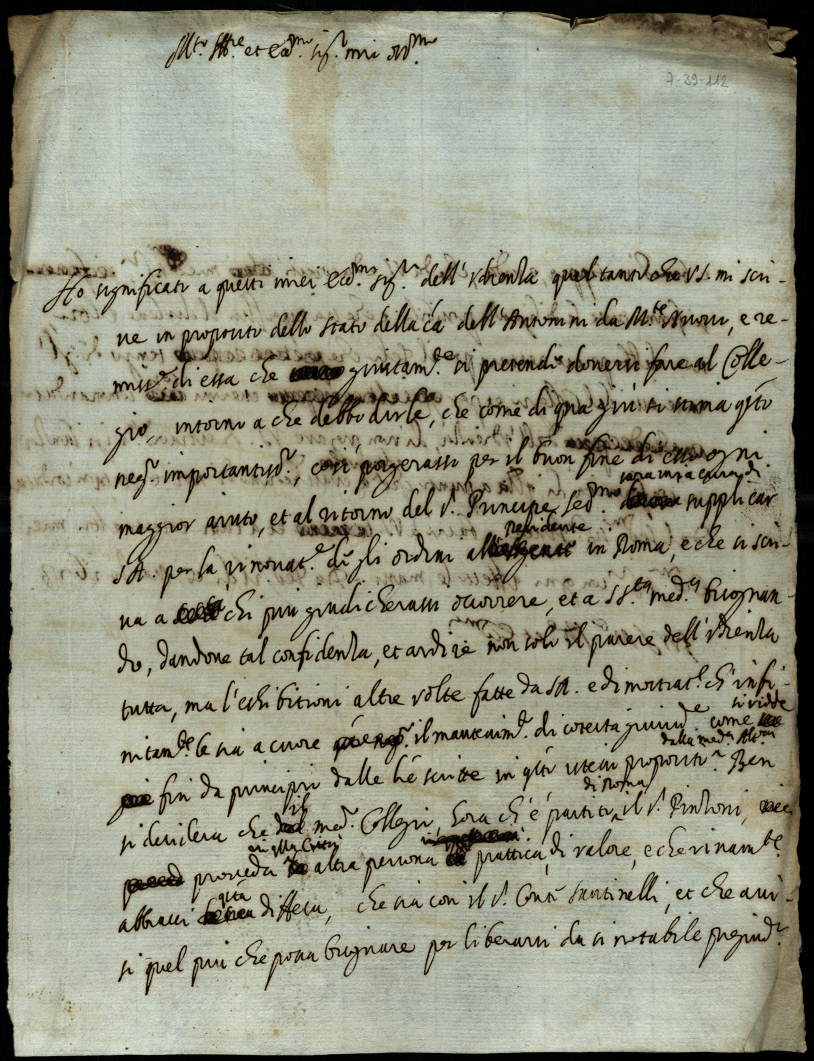 Mto Ill.re et Ecc.mo sig.r mio oss.mo
7-39-112
Ho significato a questi miei Ecc.mi sig.ri dell'Udienza quel tanto che VS. mi scri-
ve in proposito dello stato della cã dell'Antonini da M.te Nuovo, e re-
miss.e di essa che giustam.te si pretende doversi fare al Colle-
gio, intorno a che debbo dirle, che come di qua giù si stima q̃to
neg.o importantiss.o, così porgerassi per il buon fine di esso ogni
maggior aiuto, et al ritorno del s.r Principe Ser.mo sarà nra cura di supplicar
SA. per la rinovat.e de gli ordini al residente in Roma, e che si scri-
va a chi più giudicherassi occorrere, et a SS.tà med.a bisognan-
do, dandone tal confidenza, et ardire non solo il parere dell'Udienza
tutta, ma l'esibitioni altre volte fatte da SA. e dimostrat.i ch'infi-
nitam.te le sia a cuore il mantenim.to di cotesta giurisd.e come si vidde
fin da principio dalle lre scritte in q̃to istesso proposito dalla med.a Alt.a Ben
si desidera che il med.o Collegio, hora ch'è partito di Roma il s.r Pinzoni,
proveda in q̃lla Città altra persona prattica, di valore, e che vivam.te
abbracci q̃sta difesa, che sia con il s.r Conte Santinelli, et che avi-
si quel più che possa bisognare per liberarsi da sì notabile pregiud.o